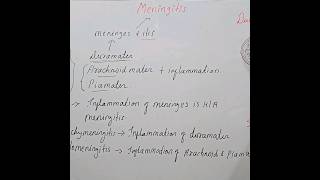 Meningitis
meninges + itis
Duramater
Arachnoid mater + inflammation
Piamater
→ Inflammation of meninges is K/A
meningitis
chymeningitis → Inflammation of duramater
omeningitis → Inflammation of Arachnoid & Piama